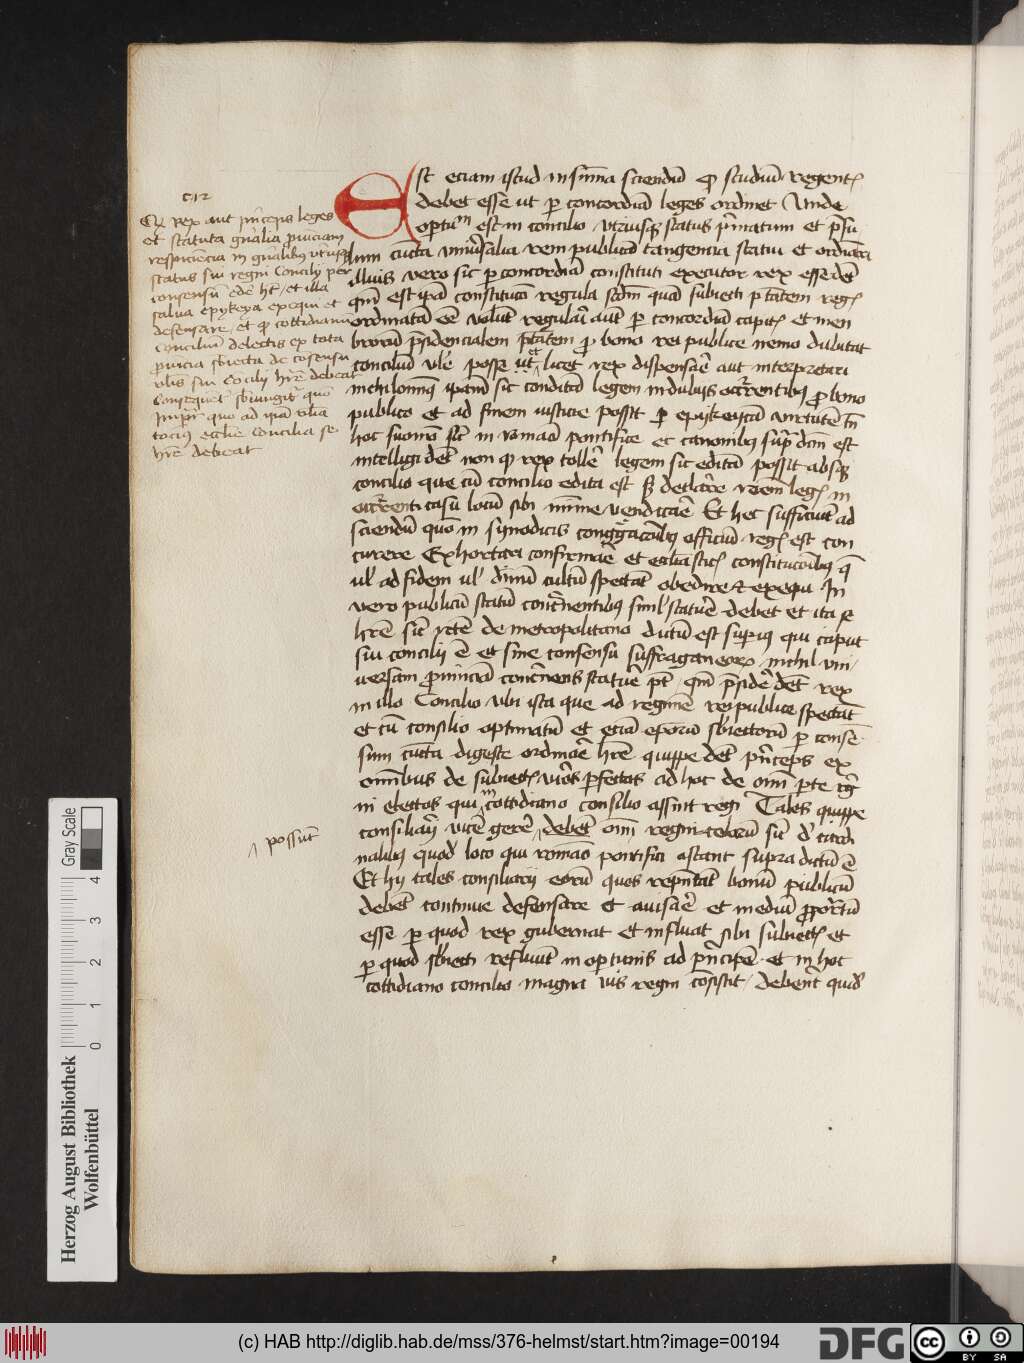 c 12
Qz rex aut princeps leges
et statuta gnalia prouinciam
respiciencia in gnalibus utriusque
status sui regni Concilij per
consensum edere het, et illa
salua epykeya exequi et
defensare, et quod cottidianum
Concilium delectis ex tota
prouincia subiecta de consensu
vlis sui Concilij here debeat
Consequenter subiungitur quo
Impr quo ad ipsa vlia
tocius ecclie Concilia se
here debeat
Est eciam istud in summa sciendum quod studium regentis
debet esse ut per concordiam leges ordinet Vnde
optimum est in concilio vtriusque status primatum et presu
lum cuncta vniuersalia rem publicam tangencia statui et ordinari
illius vero sic per concordiam constituti executor rex esse debet
quoniam est ipsa constitutum regula secundum quam subiecti potestatem regis
ordinatam esse volunt regulari aut per concordiam capitis et mem
brorum presidencialem potestatem pro bono rei publice nemo dubitat
concilium vle posse ut et licet rex dispensare aut interpretari
nichilominus ipsam sic conditam legem in dubijs occurrentibus pro bono
publico et ad finem iusticie possit per epykeycam virtutem tamen
hoc suomodo sicut in romano pontifice et canonibus supra dictum est
intelligi debet non quod rex tollere legem sic editam possit absque
concilio que cum concilio edita est sed declarare racionem legis in
occurrenti casu locum sibi minime vendicare Et hec sufficiunt ad
sciendum quomodo in synodicis congregacionibus officium regis est con
currere Exhortari confirmare et ecclesiasticis constitucionibus que
vel ad fidem vel diuinum cultum spectant obedire et exequi In
vero publicum statum concernentibus simul statuere debet et ita se
here sicut recte de metropolitano dictum est superius qui caput
sui concilij est et sine consensu suffraganeorum nichil vni
uersam prouinciam concernens statuere potest quoniam presidere debet rex
in illo Concilio vbi ista que ad regimen rei publice spectant
et cum consilio optimatum et eciam episcoporum subiectorum per consen
sum cuncta digeste ordinare here quippe debet princeps ex
omnibus de subiectis viros perfectos ad hoc de omni parte reg
ni electos qui in cottidiano consilio assint regi Tales quippe
consiliarij vicem gerere debent omnium regnicolarum sicut de cardi
nalibus quod loco qui romano pontifici astant supra dictum est
Et hij tales consiliarij eorum quos representant bonum publicum
debent continue defensare et auisare et medium proportum
esse per quod rex gubernat et influat sibi subiectis et
per quod subiecti refluunt in optimis ad principem et in hoc
cottidiano concilio magna vis regni consistit debent quidem
possunt
Herzog August Bibliothek
Wolfenbüttel
0 1 2 3 4
Gray Scale
(c) HAB http://diglib.hab.de/mss/376-helmst/start.htm?image=00194
DFG
cc BY SA